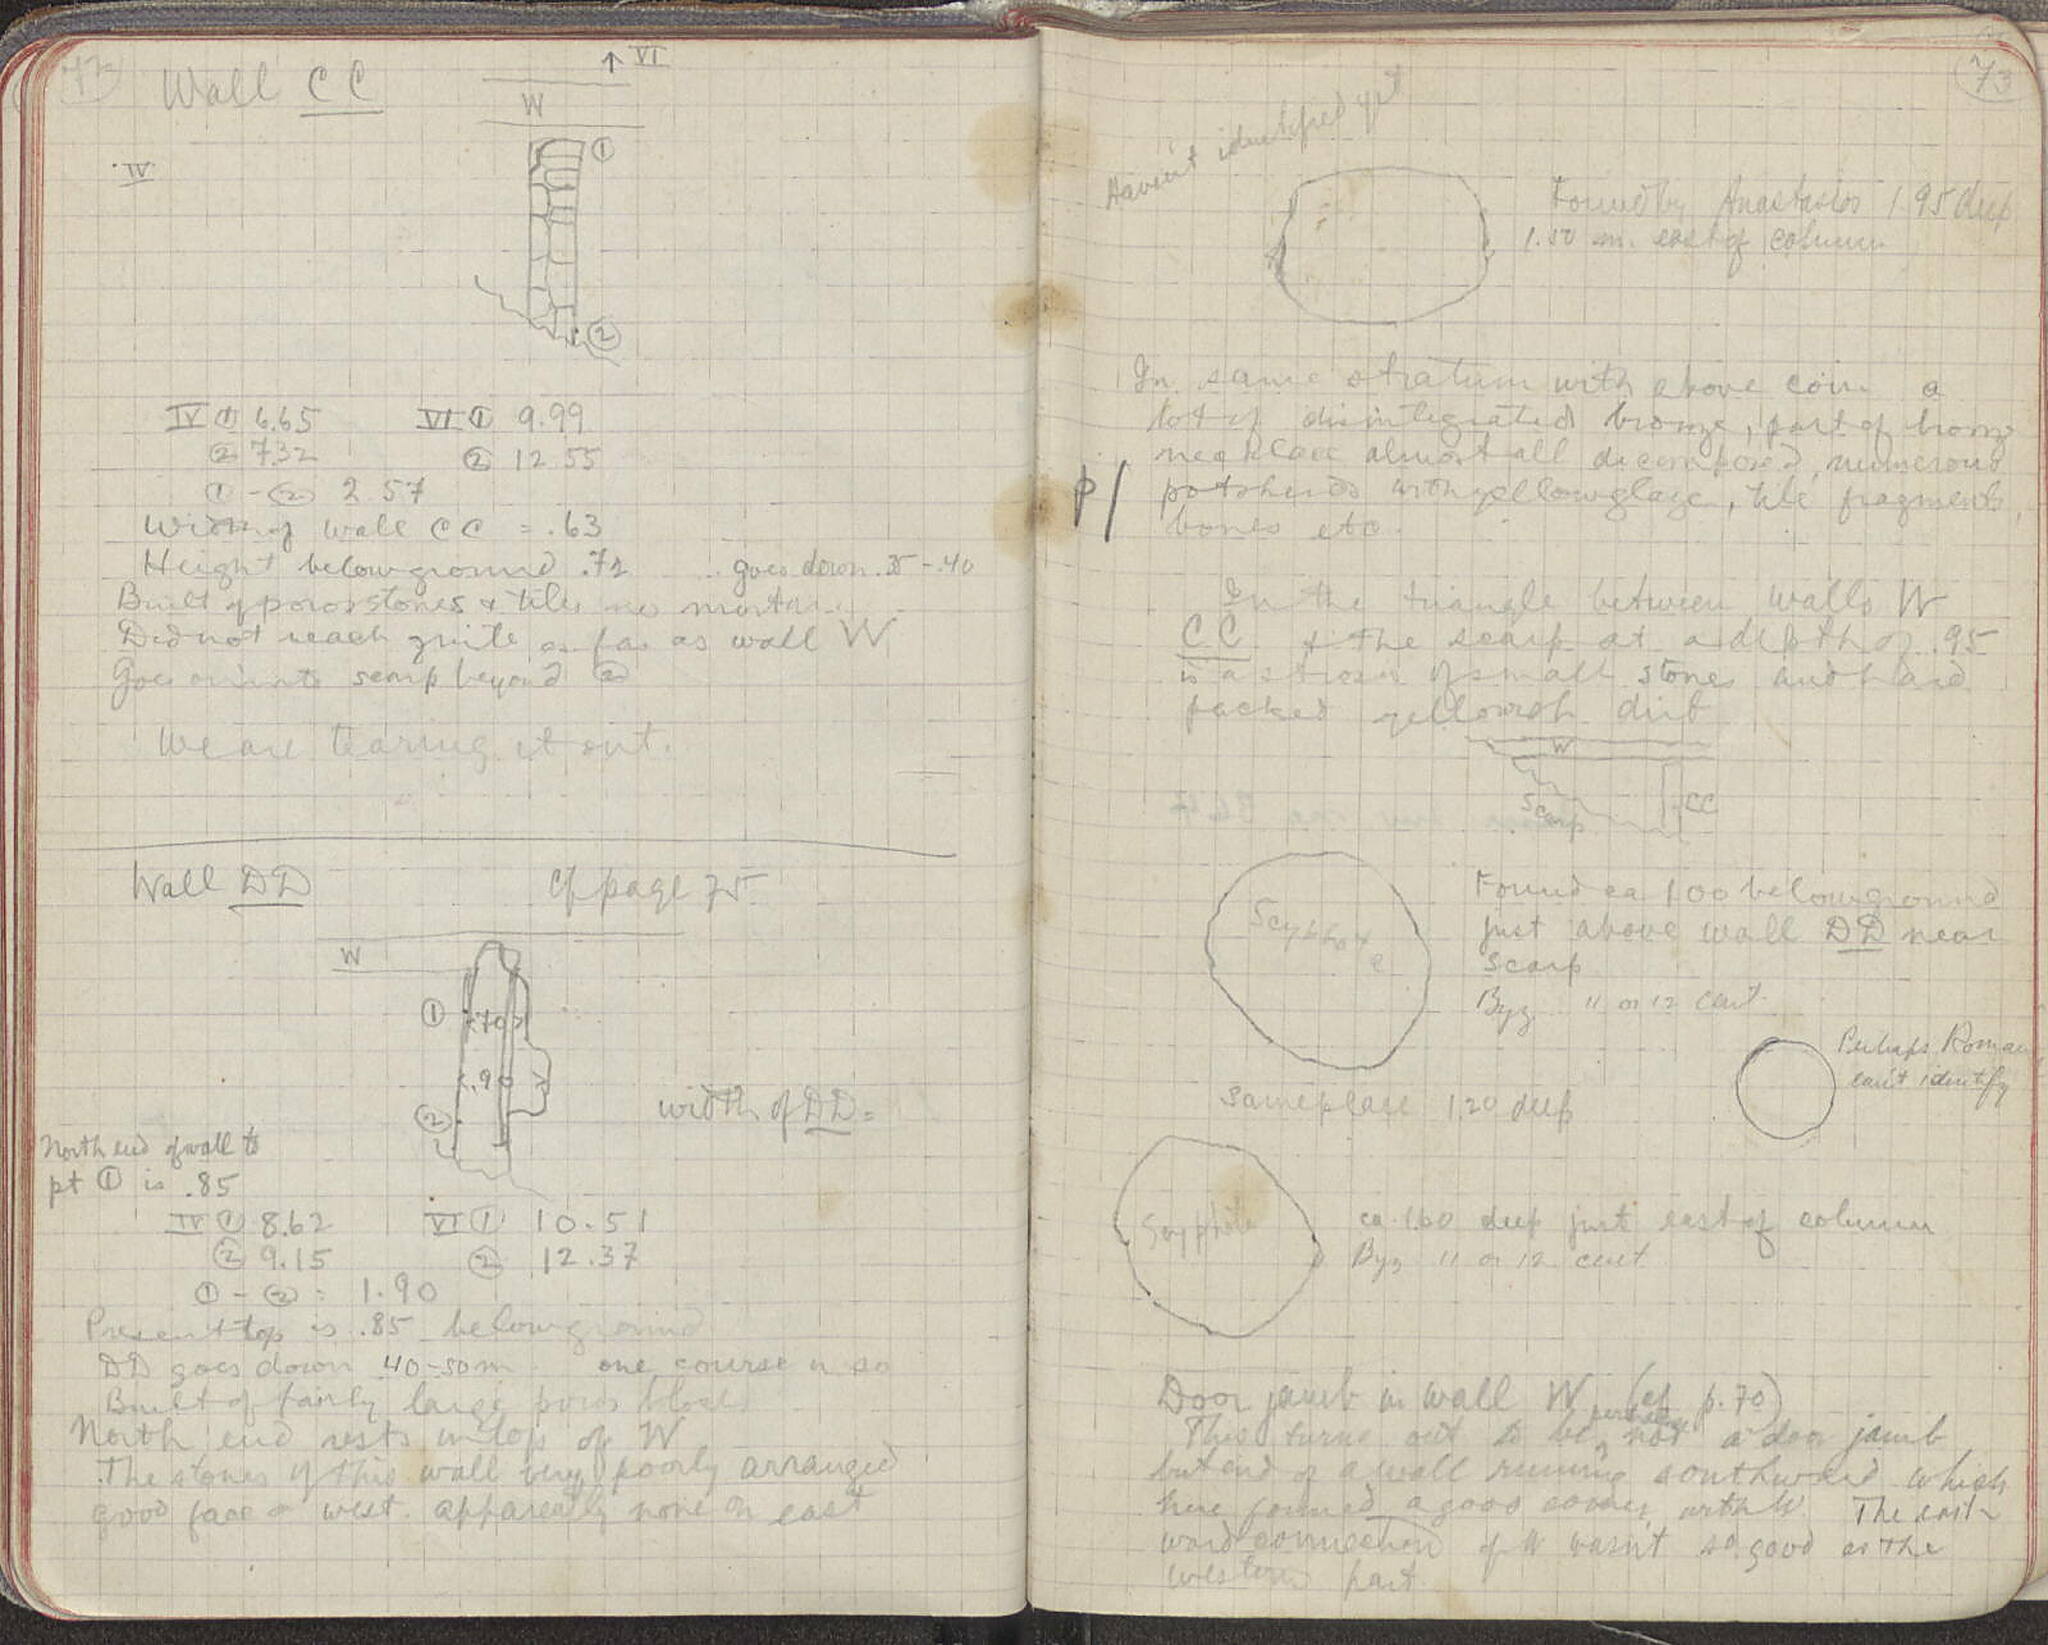 72
Wall CC
↑ VI
W
IV
①
②
IV ① 6.65 VI ① 9.99
② 7.32 ② 12.55
① - ② 2.57
Width of wall CC = .63
Height below ground .72 goes down .35 - .40
Built of poros stones & tiles no mortar
Did not reach quite as far as wall W
Goes on into scarp beyond ②
We are tearing it out.
Wall DD cf page 75
W
①
.70
.90
②
width of DD =
North end of wall to
pt ① is .85
IV ① 8.62 VI ① 10.51
② 9.15 ② 12.37
① - ② = 1.90
Present top is .85 below ground
DD goes down .40-.50 m one course or so
Built of fairly large poros blocks
North end rests on top of W
The stones of this wall very poorly arranged
good face on west. apparently none on east
73
Haven't identified yet
Found by Anastasios 1.95 deep
1.50 m. east of column
In same stratum with above coin a
lot of disintegrated bronze, part of bronze
necklace almost all decomposed, numerous
potsherds with yellow glaze, tile fragments,
bones etc.
p/
In the triangle between walls W
CC & the scarp at a depth of .95
is a strosis of small stones and hard
packed yellowish dirt
W
Scarp
CC
Scyphate
Found ca 1.00 below ground
just above wall DD near
scarp
Byz 11 or 12 cent.
Perhaps Roman
can't identify
Same place 1.20 deep
Scyphate
ca. 1.60 deep just east of column
Byz 11 or 12 cent
Door jamb in wall W (cf p. 70)
This turns out to be perhaps not a door jamb
but end of a wall running southward which
here formed a good corner with W. The east-
ward connection of W wasn't so good as the
western part